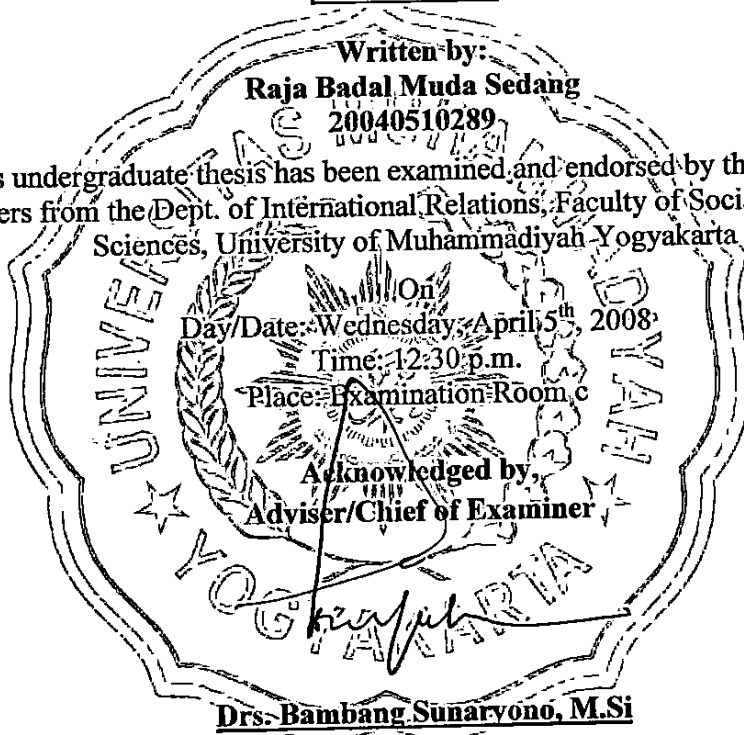 Written by:
Raja Badal Muda Sedang
20040510289
s undergraduate thesis has been examined and endorsed by th
ers from the Dept. of International Relations, Faculty of Soci
Sciences, University of Muhammadiyah Yogyakarta
On
Day/Date: Wednesday, April 5th, 2008
Time: 12:30 p.m.
Place: Examination Room c
Acknowledged by,
Adviser/Chief of Examiner
Drs. Bambang Sunaryono, M.Si
UNIVERSITAS MUHAMMADIYAH
YOGYAKARTA